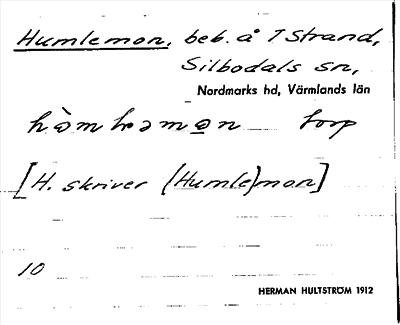 Humlemon, beb. å 7 Strand,
Silbodals sn,
Nordmarks hd, Värmlands län
torp
[H. skriver (Humle)mon]
10
HERMAN HULTSTRÖM 1912